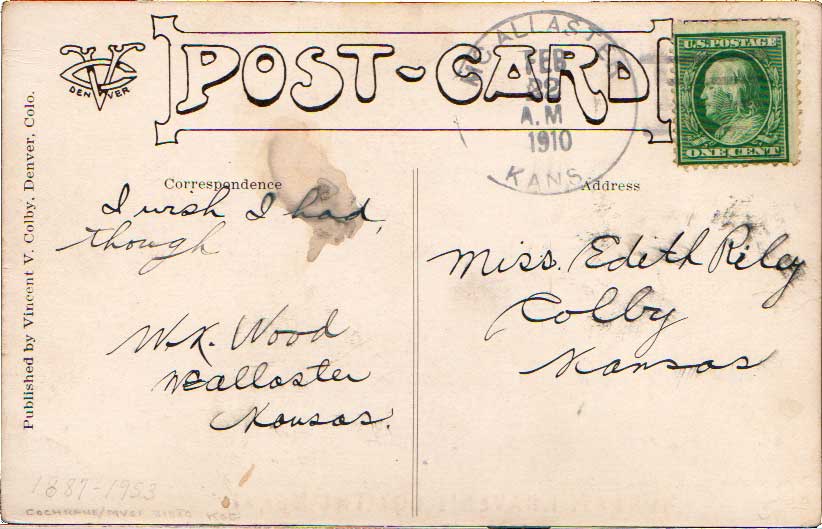 VVC
DENVER
POST-CARD
MC ALLASTER
FEB
22
A.M
1910
KANS.
U.S. POSTAGE
ONE CENT
Published by Vincent V. Colby, Denver, Colo.
Correspondence
I wish I had,
though
W.K. Wood
McAllaster
Kansas.
Address
Miss. Edith Riley
Colby
Kansas
1687-1953